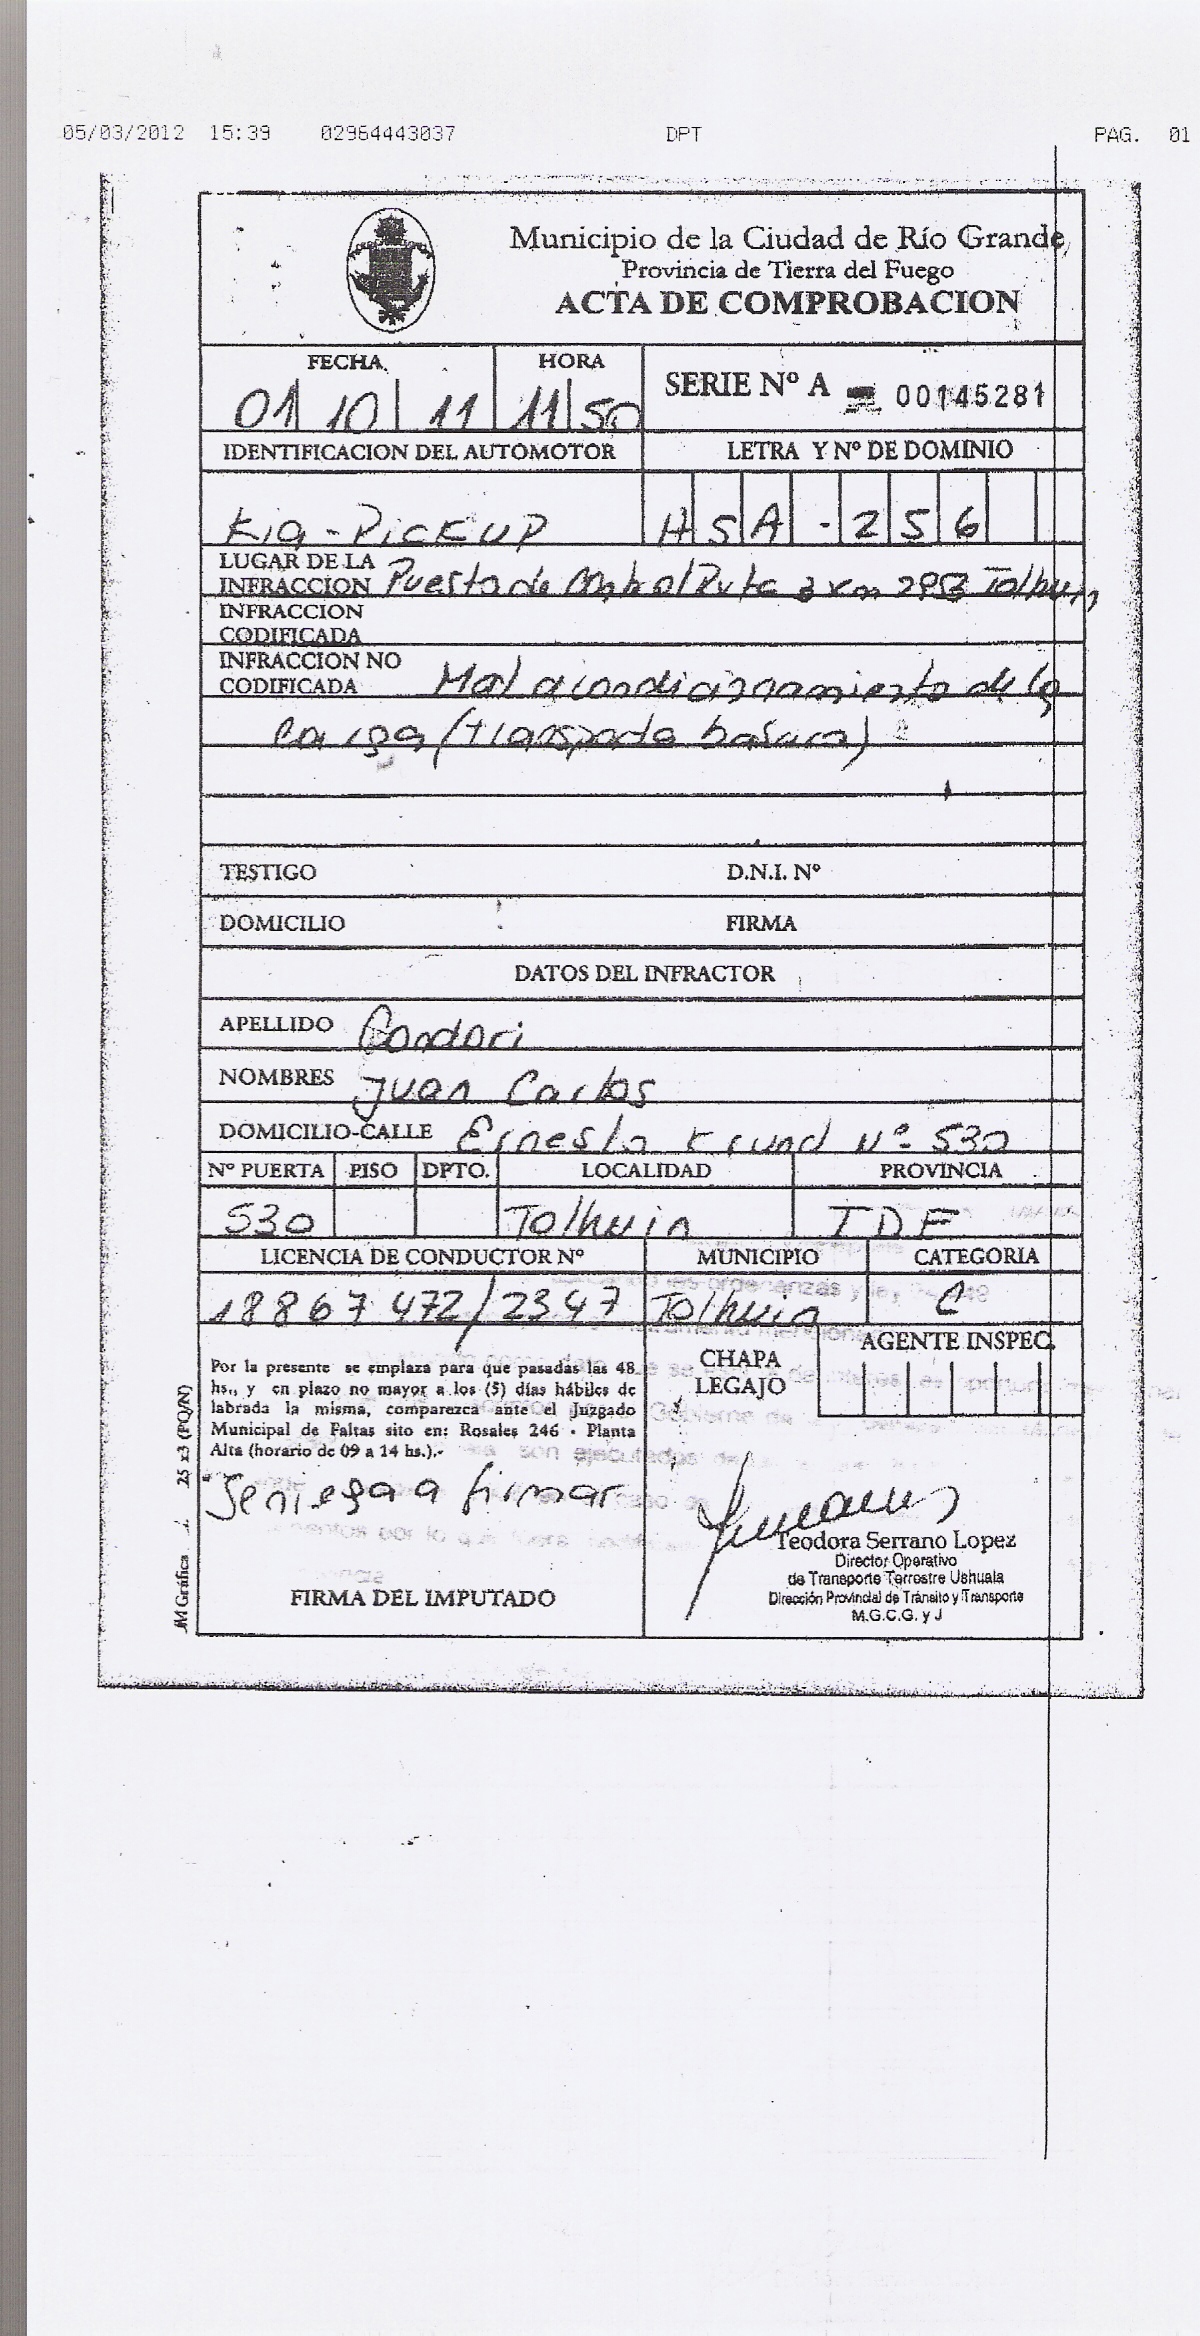 05/03/2012 15:39 02964443037 DPT PAG. 01
Municipio de la Ciudad de Río Grande
Provincia de Tierra del Fuego
ACTA DE COMPROBACION
FECHA HORA
SERIE Nº A 00145281
01 10 11 11 50
IDENTIFICACION DEL AUTOMOTOR LETRA Y Nº DE DOMINIO
Kia - Pick up H S A - 2 5 6
LUGAR DE LA
INFRACCION Puesto de Control Ruta 3 Km 2953 Tolhuin
INFRACCION
CODIFICADA
INFRACCION NO
CODIFICADA Mal acondicionamiento de la
Carga (transporta basura)
TESTIGO D.N.I. Nº
DOMICILIO FIRMA
DATOS DEL INFRACTOR
APELLIDO Condori
NOMBRES Juan Carlos
DOMICILIO-CALLE Ernesto Krund Nº 530
Nº PUERTA PISO DPTO. LOCALIDAD PROVINCIA
530 Tolhuin TDF
LICENCIA DE CONDUCTOR Nº MUNICIPIO CATEGORIA
18867472/2347 Tolhuin C
AGENTE INSPEC.
CHAPA
LEGAJO
Por la presente se emplaza para que pasadas las 48
hs., y en plazo no mayor a los (5) días hábiles de
labrada la misma, comparezca ante el Juzgado
Municipal de Faltas sito en: Rosales 246 - Planta
Alta (horario de 09 a 14 hs.).-
Se niega a firmar
FIRMA DEL IMPUTADO
Teodora Serrano Lopez
Director Operativo
de Transporte Terrestre Ushuaia
Dirección Provincial de Tránsito y Transporte
M.G.C.G. y J
JM Gráfica 25 x3 (PQ/N)